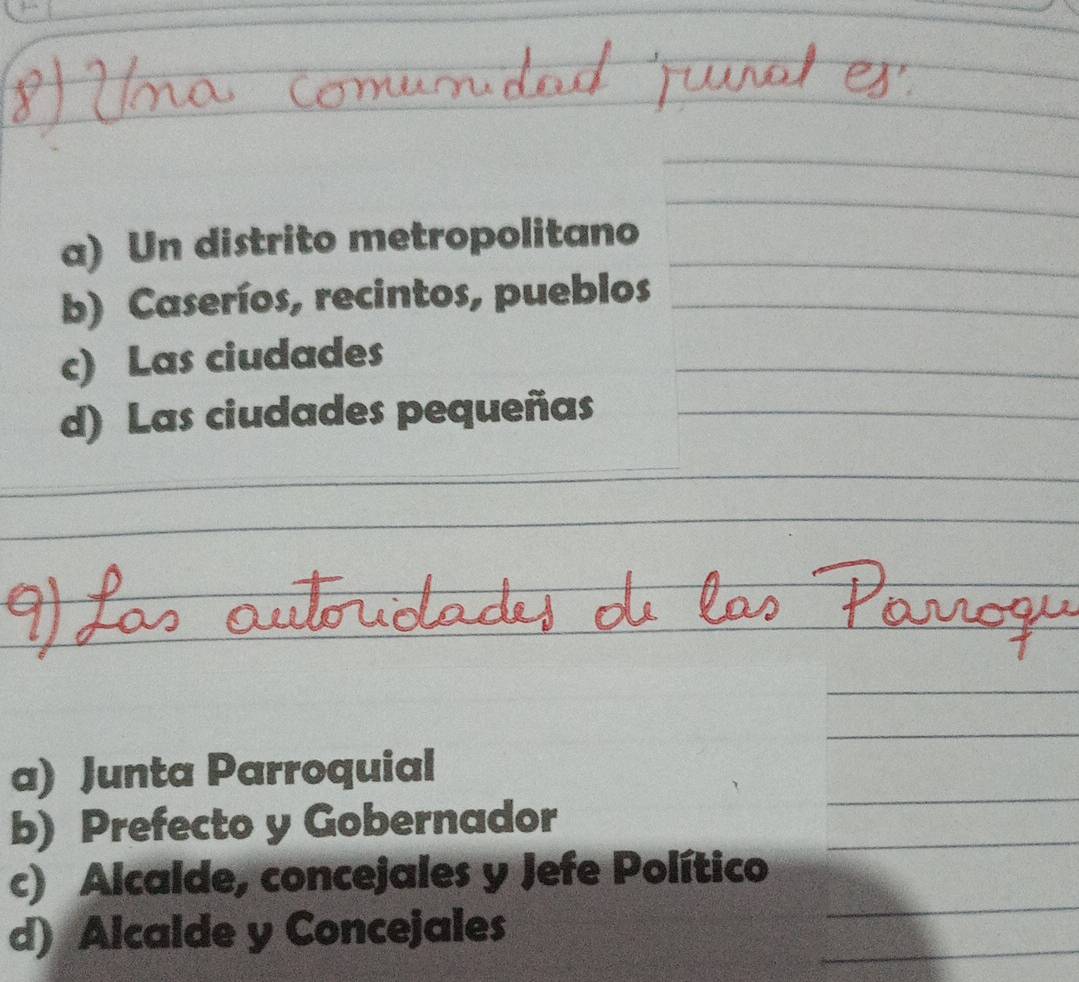 8) Una comunidad rural es:
a) Un distrito metropolitano
b) Caseríos, recintos, pueblos
c) Las ciudades
d) Las ciudades pequeñas
9) Las autoridades de las Parroqu
a) Junta Parroquial
b) Prefecto y Gobernador
c) Alcalde, concejales y Jefe Político
d) Alcalde y Concejales